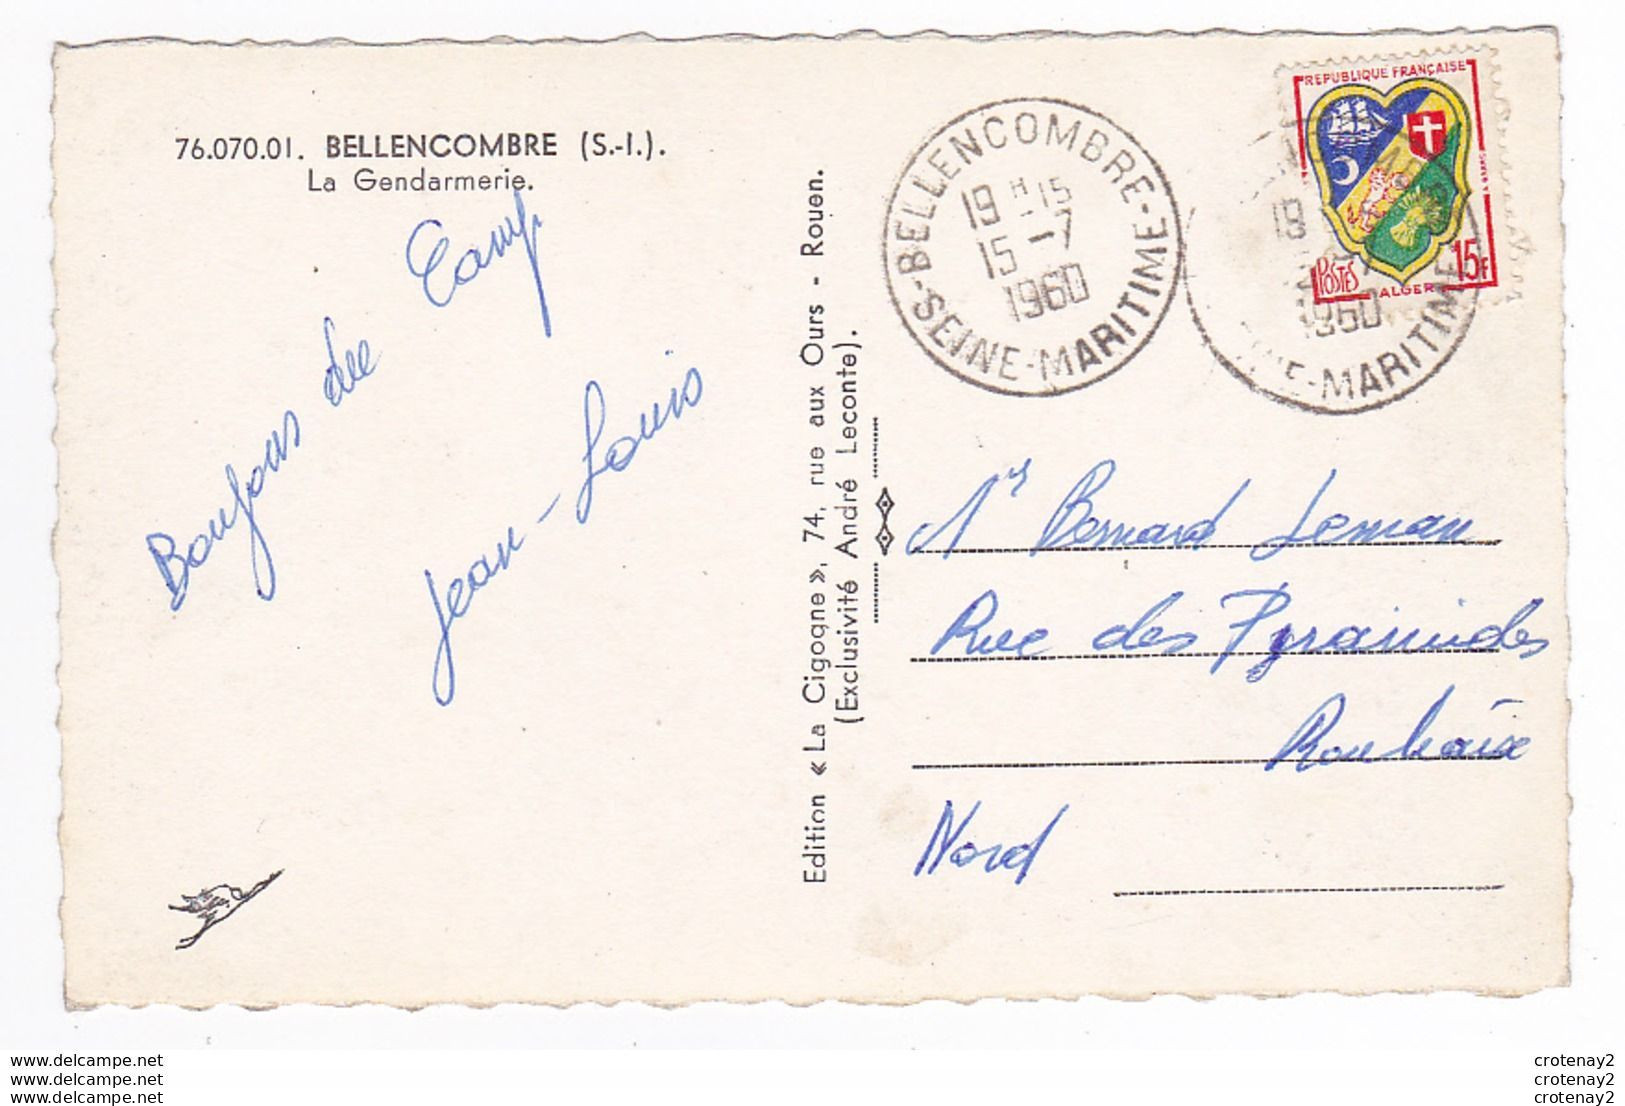 76.070.01. BELLENCOMBRE (S.-I.).
La Gendarmerie.
Bonjour du Camp
Jean-Louis
Edition « La Cigogne », 74, rue aux Ours - Rouen.
(Exclusivité André Leconte).
BELLENCOMBRE-
19 H 15
15 -7
1960
-SEINE-MARITIME-
REPUBLIQUE FRANÇAISE
POSTES
ALGER
15F
19
1960
INE-MARITIME
Mr Bernard Leman
Rue des Pyramides
Roubaix
Nord
www.delcampe.net
www.delcampe.net
www.delcampe.net
crotenay2
crotenay2
crotenay2